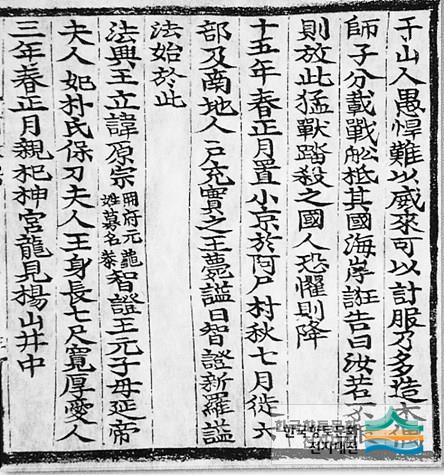 于山人愚悍難以威來可以計服乃多造木偶
師子分載戰舩抵其國海岸誑告曰汝若不
則放此猛獸踏殺之國人恐懼則降
十五年春正月置小京於阿尸村秋七月徙六
部及南地人戶充實之王薨諡曰智證新羅諡
法始於此
法興王立諱原宗冊府元龜姓募名秦智證王元子母延帝
夫人妃朴氏保刀夫人王身長七尺寬厚愛人
三年春正月親祀神宮龍見楊山井中
한국향토문화
전자대전